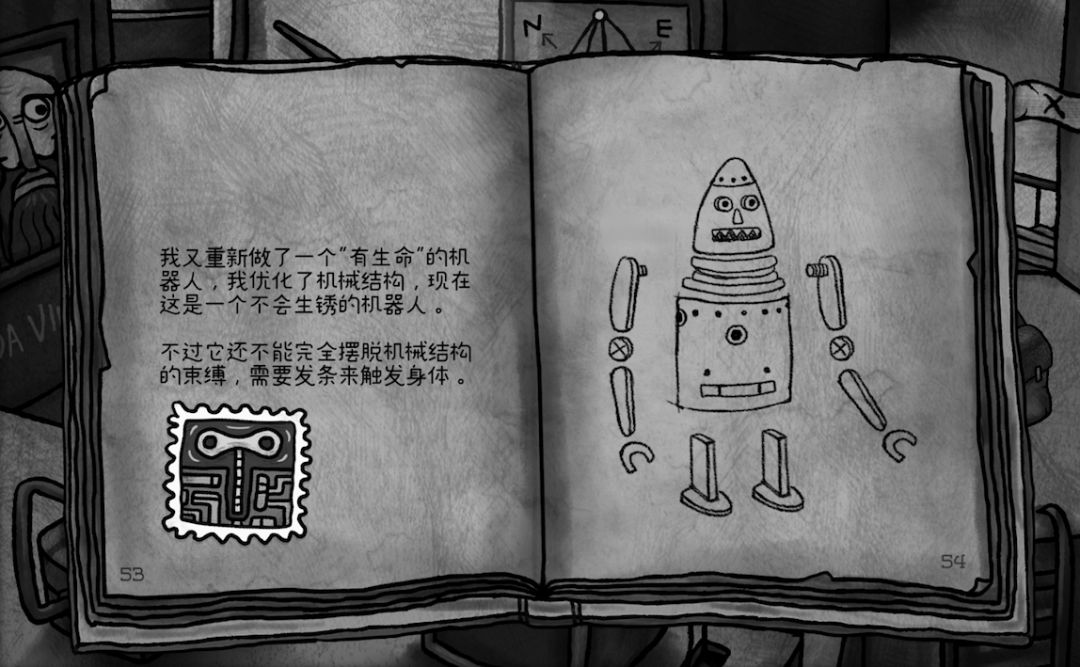 N
E
X
DA VI
我又重新做了一个"有生命"的机
器人，我优化了机械结构，现在
这是一个不会生锈的机器人。
不过它还不能完全摆脱机械结构
的束缚，需要发条来触发身体。
53
54